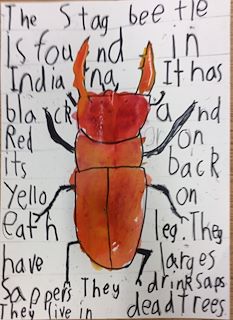 The Stag beetle
Is found in
Indiana It has
black and
Red on on
its back
Yello on
eath leg. They
have larges
Sappers They drink saps
They live in dead trees